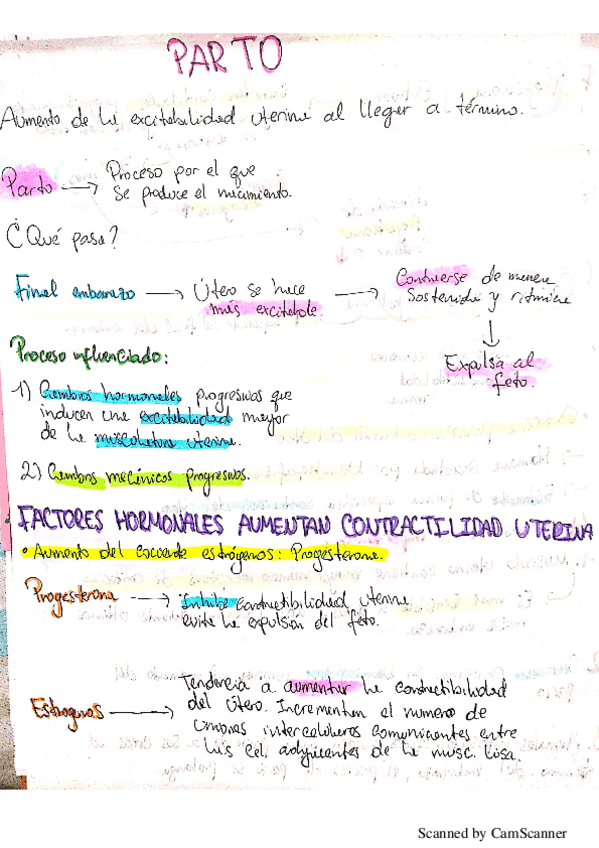 PARTO
Aumento de la excitabilidad uterina al llegar a término.
Parto → Proceso por el que
se produce el nacimiento.
¿Qué pasa?
Final embarazo → Útero se hace
más excitable. → Contraerse de manera
sostenida y rítmica
↓
Expulsa al
feto.
Proceso influenciado:
1) Cambios hormonales progresivos que
inducen una excitabilidad mayor
de la musculatura uterina.
2) Cambios mecánicos progresivos.
FACTORES HORMONALES AUMENTAN CONTRACTILIDAD UTERINA
• Aumento del cociente estrógenos: Progesterona.
Progesterona → Inhibe contractibilidad uterina
evita la expulsión del feto.
Estrógenos → Tendencia a aumentar la contractibilidad
del útero. Incrementan el numero de
uniones intercelulares comunicantes entre
las cél. adyacentes de la musc. lisa.
Scanned by CamScanner